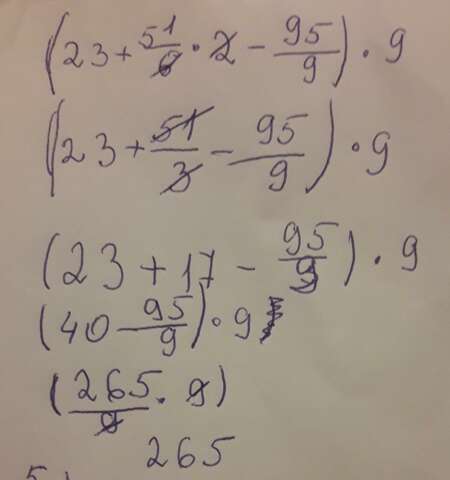 (23 + 51/6 · 2 - 95/9) · 9
(23 + 51/3 - 95/9) · 9
(23 + 17 - 95/9) · 9
(40 - 95/9) · 9
(265/9 · 9)
265